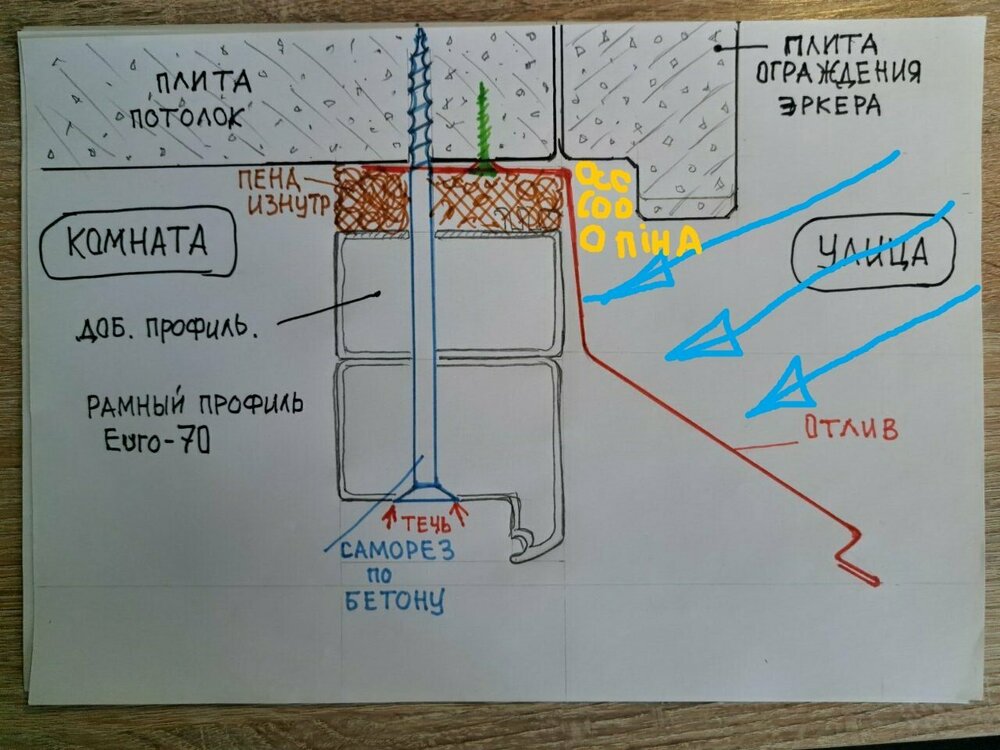 ПЛИТА
ПОТОЛОК
ПЛИТА
ОГРАЖДЕНИЯ
ЭРКЕРА
ПЕНА
ИЗНУТР
ПІНА
КОМНАТА
УЛИЦА
ДОБ. ПРОФИЛЬ.
РАМНЫЙ ПРОФИЛЬ
Euro-70
ОТЛИВ
ТЕЧЬ
САМОРЕЗ
ПО
БЕТОНУ